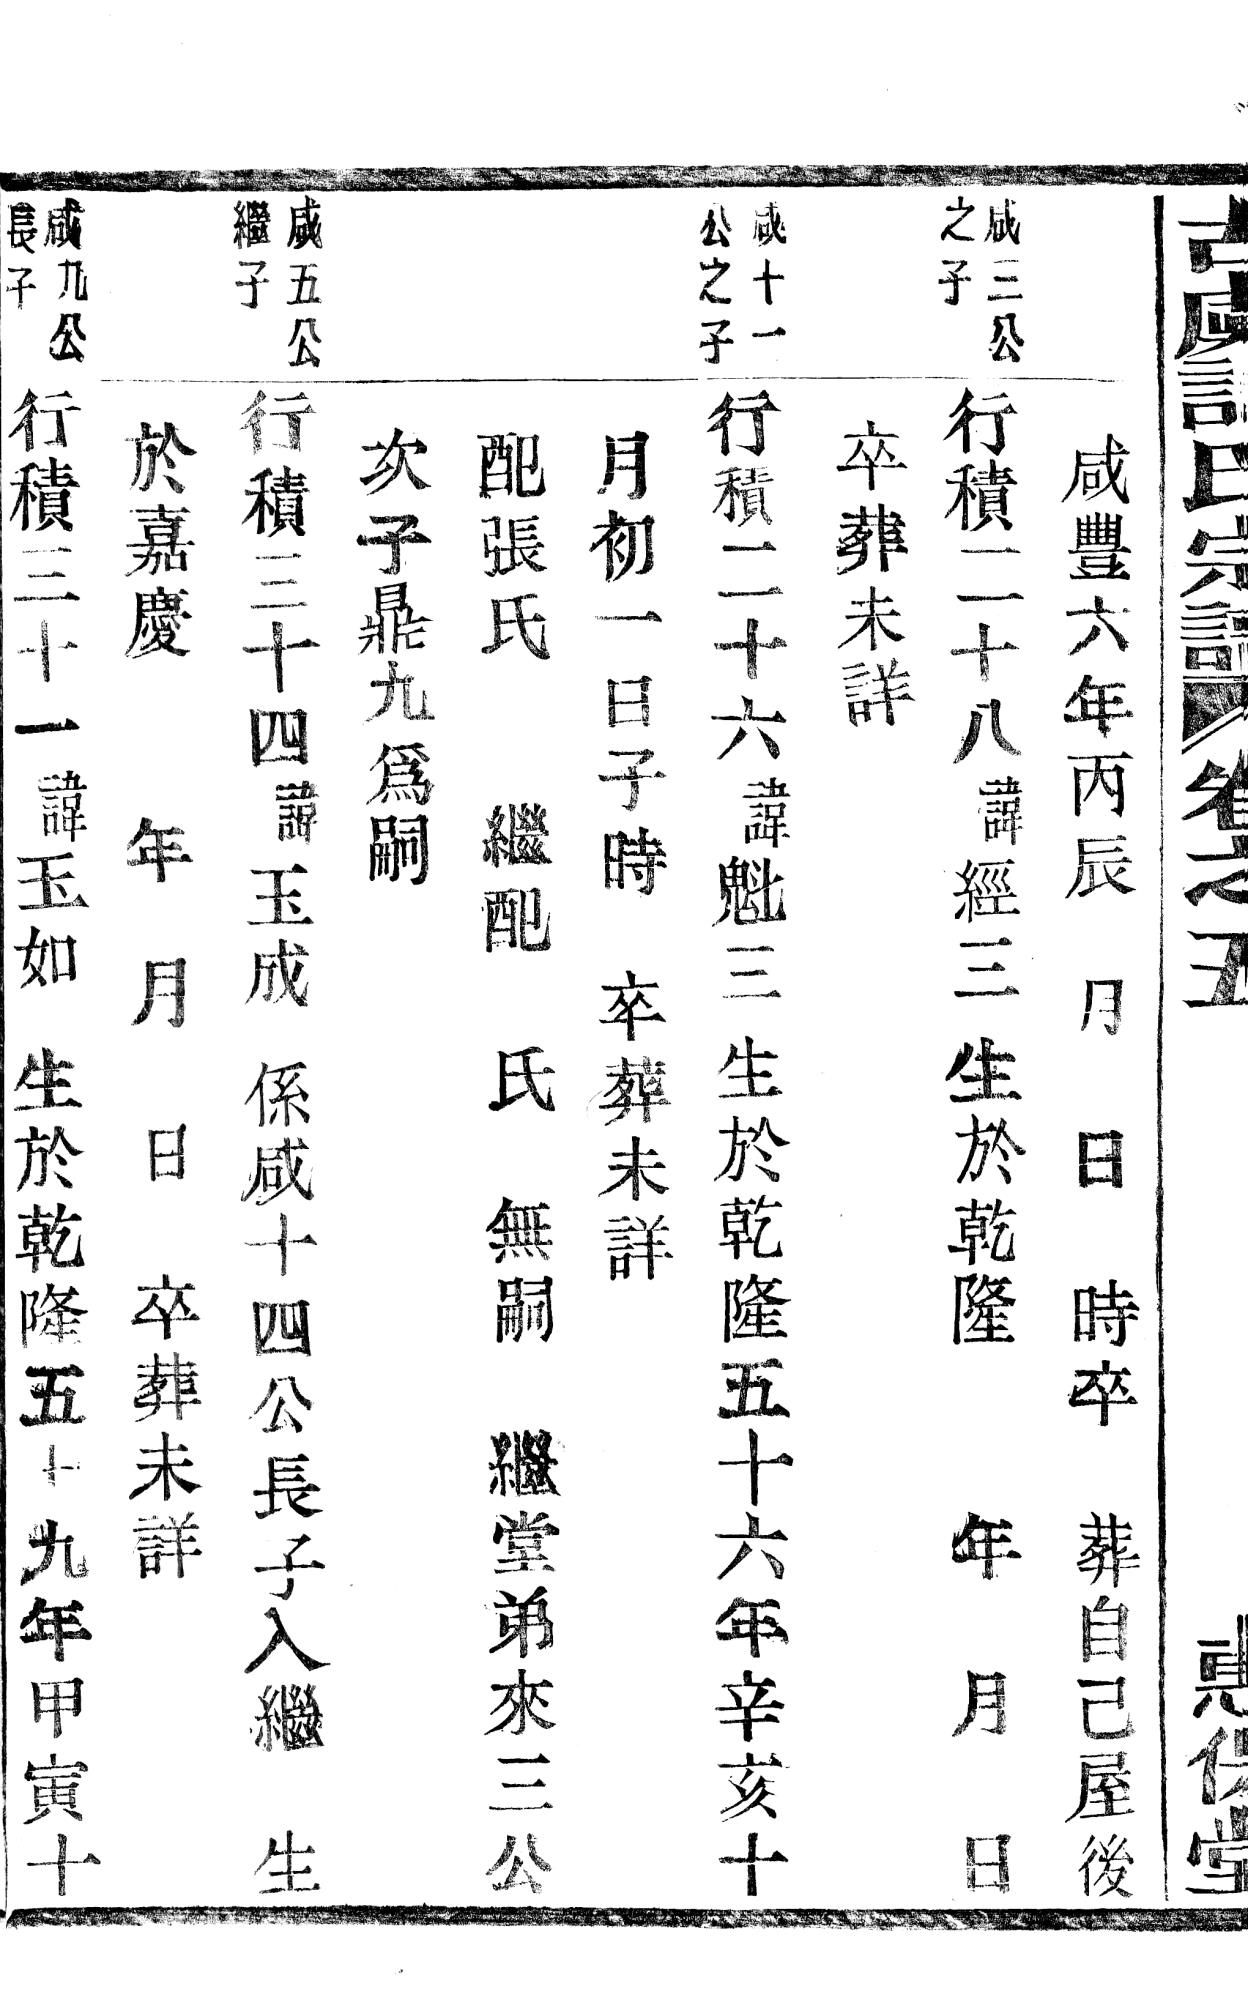 古虞許氏宗譜 卷之五 惠保堂
咸豐六年丙辰 月 日 時卒 葬自己屋後
咸三公
之子
行積二十八諱經三 生於乾隆 年 月 日
卒葬未詳
咸十一
公之子
行積二十六諱魁三 生於乾隆五十六年辛亥十
月初一日子時 卒葬未詳
配張氏 繼配 氏 無嗣 繼堂弟來三公
次子鼎九爲嗣
咸五公
繼子
行積三十四諱玉成 係咸十四公長子入繼 生
於嘉慶 年 月 日 卒葬未詳
咸九公
長子
行積三十一諱玉如 生於乾隆五十九年甲寅十